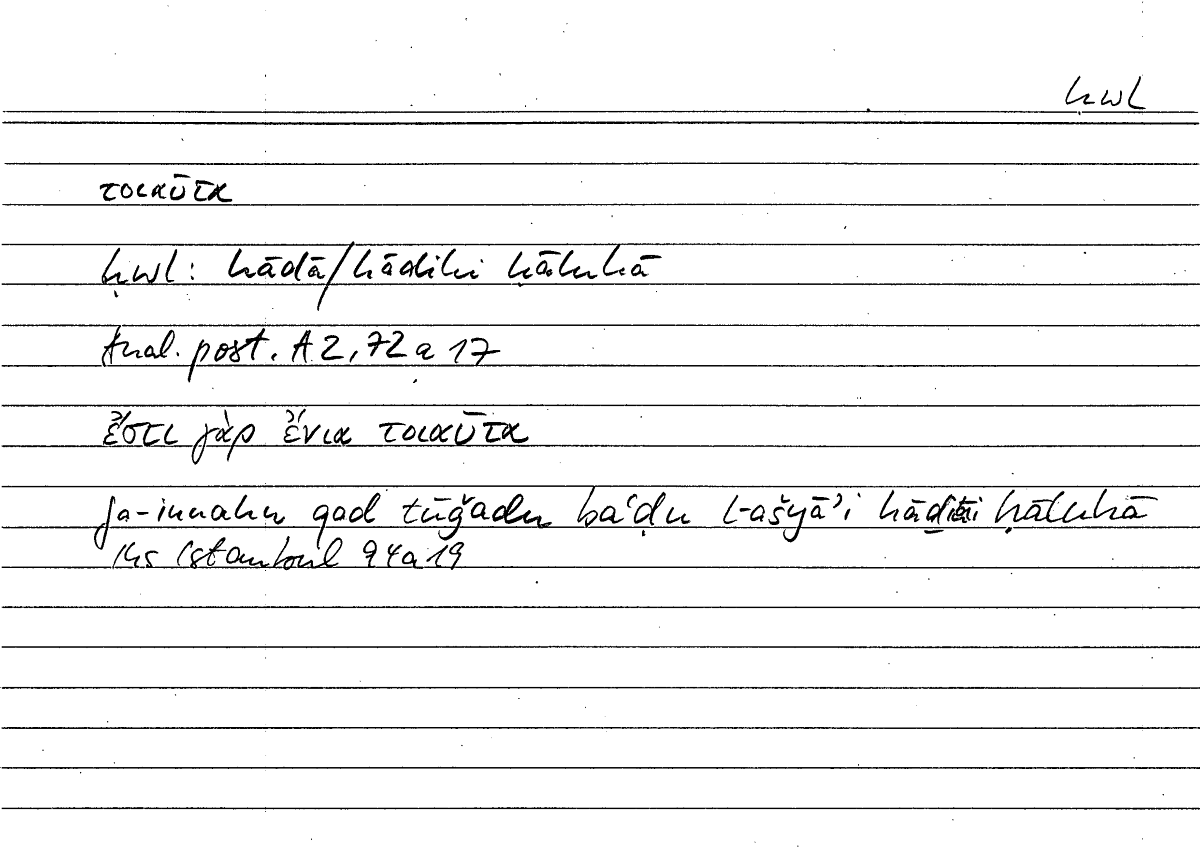 ḥwl
τοιαῦτα
ḥwl: hādā/hādihi ḥāluhā
Anal. post. A 2, 72 a 17
ἔστι γὰρ ἔνια τοιαῦτα
fa-innahu qad tūǧadu baʿḍu l-ašyāʾi hāḏihi ḥāluhā
Hs Istanbul 94a19